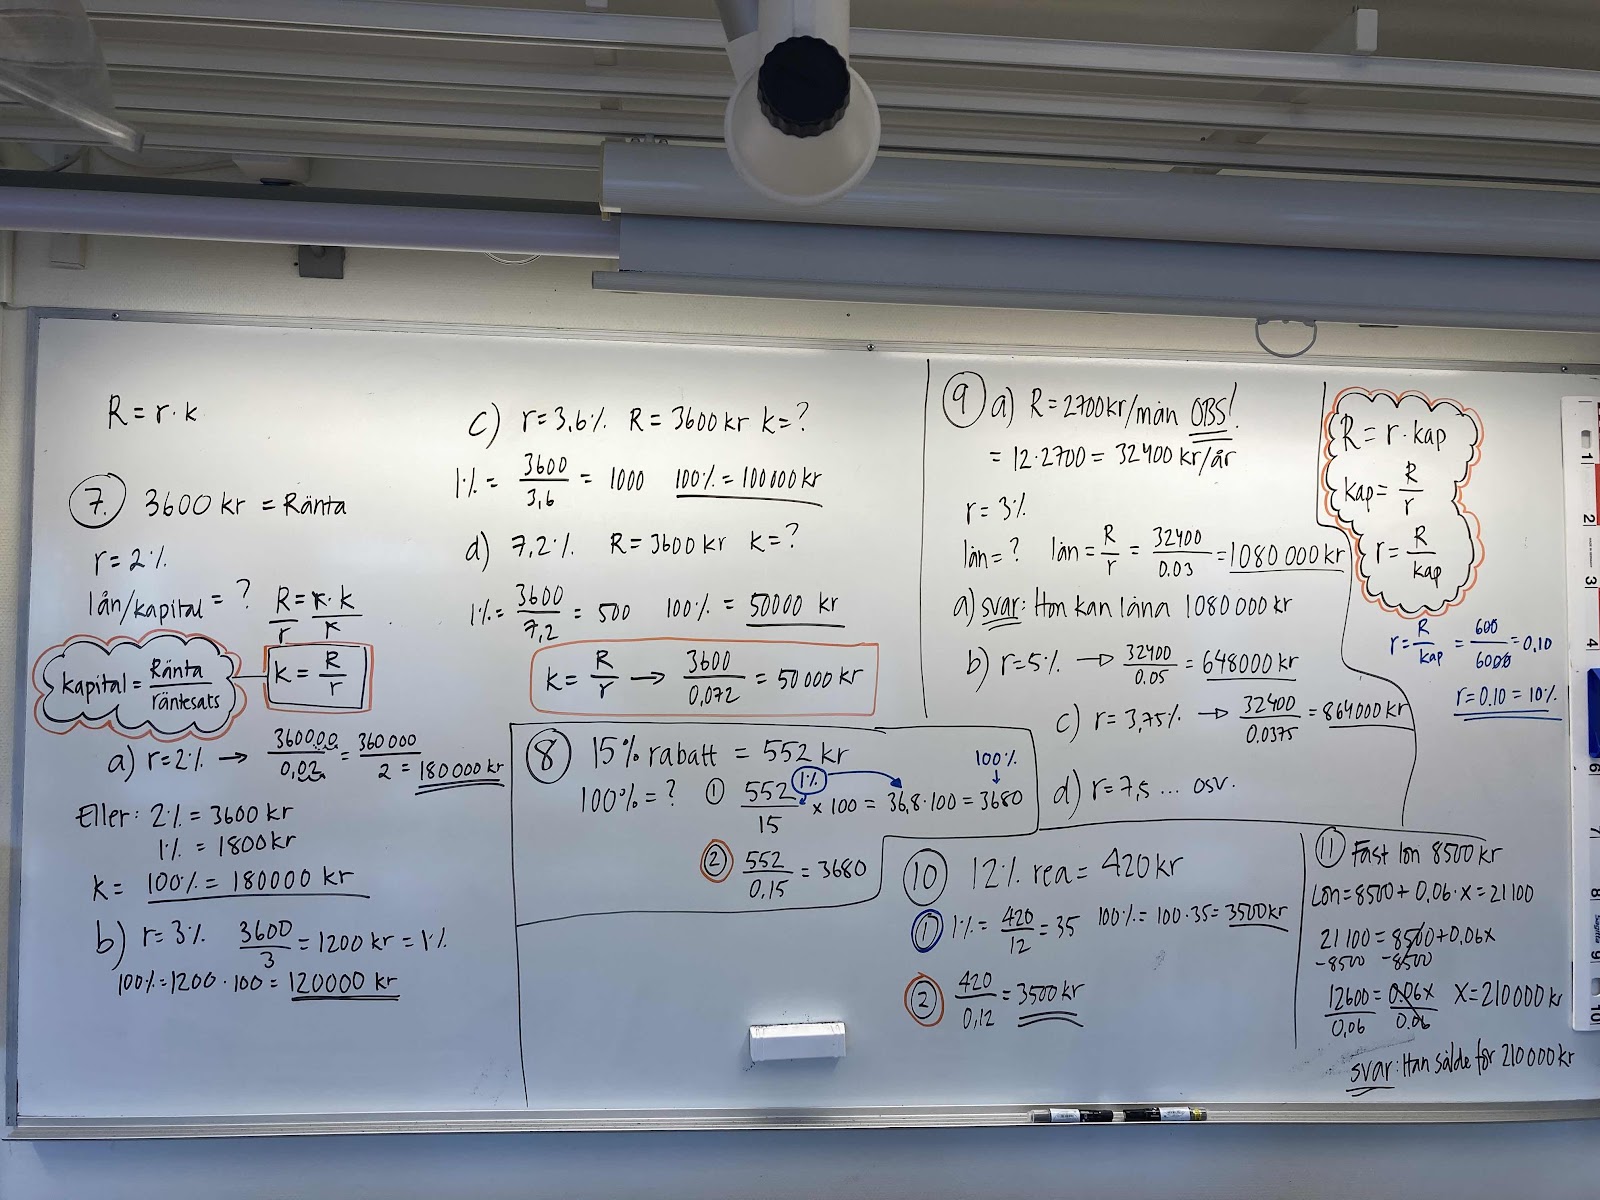 R = r · k
7. 3600 kr = Ränta
r = 2%
lån/kapital = ?
R/r = r · k/r
kapital = Ränta/räntesats
k = R/r
a) r = 2% → 360000/0,02 = 360000/2 = 180000 kr
Eller: 2% = 3600 kr
1% = 1800 kr
k = 100% = 180000 kr
b) r = 3% 3600/3 = 1200 kr = 1%
100% = 1200 · 100 = 120000 kr
c) r = 3,6% R = 3600 kr k = ?
1% = 3600/3,6 = 1000 100% = 100000 kr
d) 7,2% R = 3600 kr k = ?
1% = 3600/7,2 = 500 100% = 50000 kr
k = R/r → 3600/0,072 = 50000 kr
8 15% rabatt = 552 kr
100% = ? ① 552/15 x 100 = 36,8 · 100 = 3680
1%
100%
↓
② 552/0,15 = 3680
9 a) R = 2700 kr/mån OBS!
= 12 · 2700 = 32400 kr/år
r = 3%
lån = ? lån = R/r = 32400/0.03 = 1080 000 kr
a) svar: Hon kan låna 1080 000 kr
b) r = 5% → 32400/0.05 = 648000 kr
c) r = 3,75% → 32400/0.0375 = 864000 kr
d) r = 7,5 ... osv.
R = r · kap
kap = R/r
r = R/kap
r = R/kap = 600/6000 = 0,10
r = 0.10 = 10%
10 12% rea = 420 kr
① 1% = 420/12 = 35 100% = 100 · 35 = 3500 kr
② 420/0,12 = 3500 kr
11 Fast lön 8500 kr
Lön = 8500 + 0,06 · x = 21100
21 100 = 8500 + 0,06x
-8500 -8500
12600/0,06 = 0.06x/0.06 X = 210000 kr
svar: Han sålde för 210000 kr
1
2
3
4
6
7
8
9
10